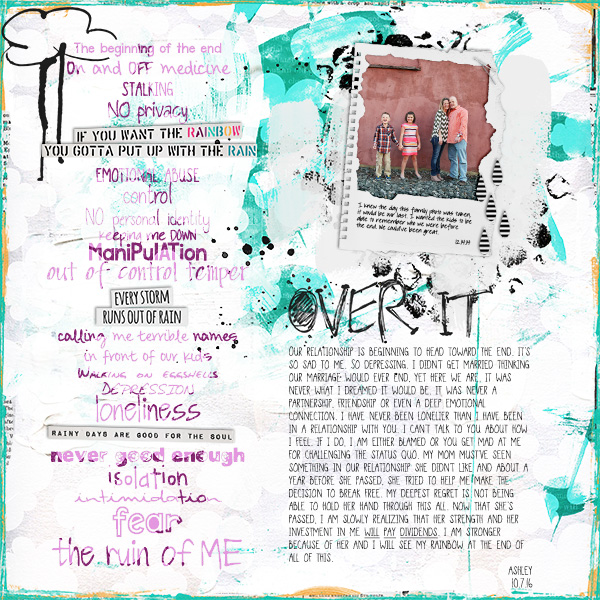 The beginning of the end
On and OFF medicine
STALKING
NO privacy
IF YOU WANT THE RAINBOW
YOU GOTTA PUT UP WITH THE RAIN
EMOTIONAL ABUSE
control
NO personal identity
keeping me DOWN
ManiPulATion
out of control temper
EVERY STORM
RUNS OUT OF RAIN
calling me terrible names
in front of our kids
WALKING ON EGGSHELLS
DEPRESSION
loneliness
RAINY DAYS ARE GOOD FOR THE SOUL
never good enough
isolation
intimidation
fear
the ruin of ME
I knew the day this family photo was taken,
it would be our last. I wanted the kids to be
able to remember who we were before
the end. We could've been great.
12.14.14
OVER IT
OUR RELATIONSHIP IS BEGINNING TO HEAD TOWARD THE END. IT'S
SO SAD TO ME. SO DEPRESSING. I DIDN'T GET MARRIED THINKING
OUR MARRIAGE WOULD EVER END, YET HERE WE ARE. IT WAS
NEVER WHAT I DREAMED IT WOULD BE. IT WAS NEVER A
PARTNERSHIP, FRIENDSHIP OR EVEN A DEEP EMOTIONAL
CONNECTION. I HAVE NEVER BEEN LONELIER THAN I HAVE BEEN
IN A RELATIONSHIP WITH YOU. I CAN'T TALK TO YOU ABOUT HOW
I FEEL. IF I DO, I AM EITHER BLAMED OR YOU GET MAD AT ME
FOR CHALLENGING THE STATUS QUO. MY MOM MUST'VE SEEN
SOMETHING IN OUR RELATIONSHIP SHE DIDN'T LIKE AND ABOUT A
YEAR BEFORE SHE PASSED, SHE TRIED TO HELP ME MAKE THE
DECISION TO BREAK FREE. MY DEEPEST REGRET IS NOT BEING
ABLE TO HOLD HER HAND THROUGH THIS ALL. NOW THAT SHE'S
PASSED, I AM SLOWLY REALIZING THAT HER STRENGTH AND HER
INVESTMENT IN ME WILL PAY DIVIDENDS. I AM STRONGER
BECAUSE OF HER AND I WILL SEE MY RAINBOW AT THE END OF
ALL OF THIS.
ASHLEY
10.7.16